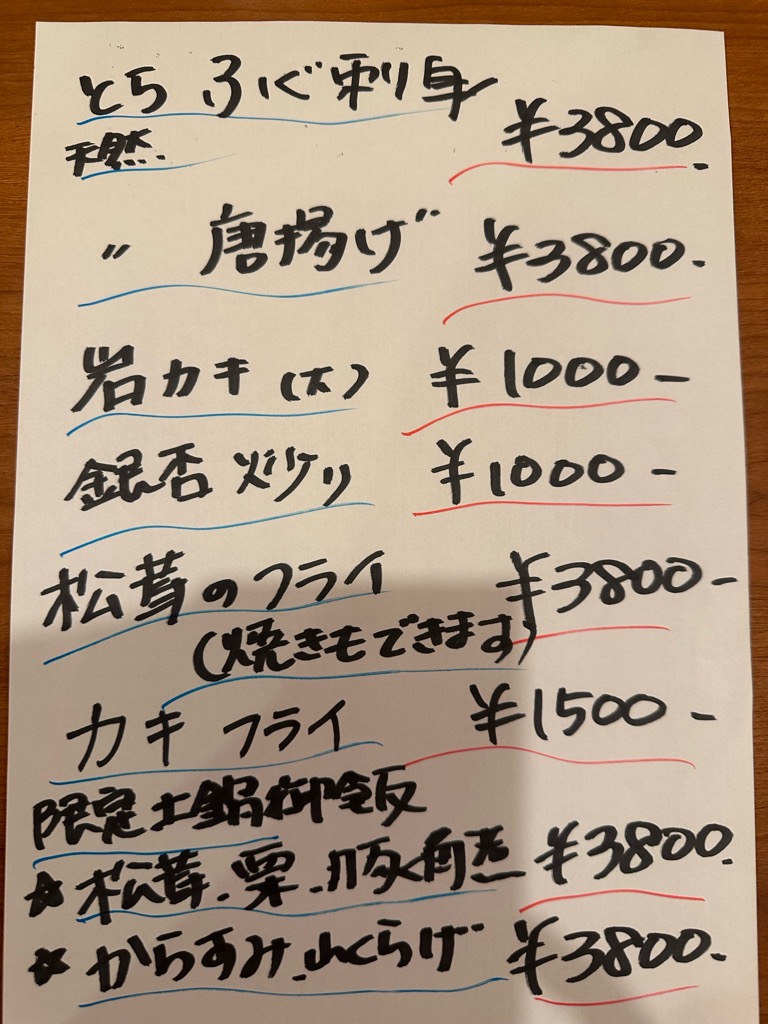 とらふぐ刺身 ¥3800.
天然
〃 唐揚げ ¥3800.
岩カキ(大) ¥1000-
銀杏 炒り ¥1000-
松茸のフライ ¥3800-
(焼きもできます)
カキ フライ ¥1500-
限定土鍋御飯
☆松茸.栗.豚角煮 ¥3800.
☆からすみ.山くらげ ¥3800.